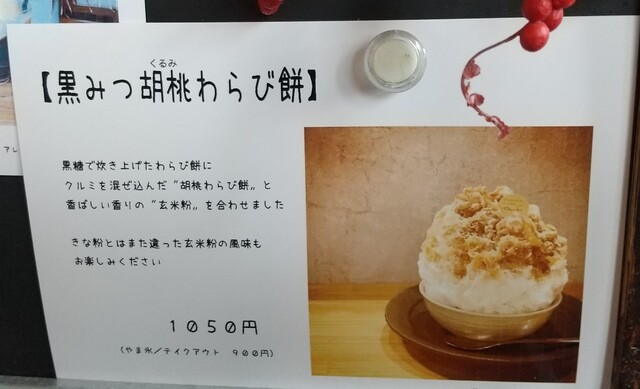 くるみ
【黒みつ胡桃わらび餅】
アレ
黒糖で炊き上げたわらび餅に
クルミを混ぜ込んだ“胡桃わらび餅„と
香ばしい香りの“玄米粉„を合わせました
きな粉とはまた違った玄米粉の風味も
お楽しみください
1050円
(やま氷/テイクアウト 900円)